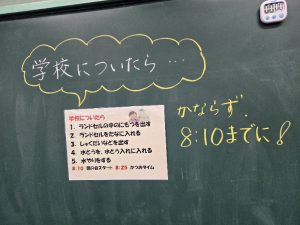 学校についたら…
学校についたら
1. ランドセルの中のにもつを出す
2. ランドセルをたなに入れる
3. しゅくだいなどを出す
4. 水とうを、水とう入れに入れる
5. 水やりをする
8:10 朝の会スタート 8:25 かつおタイム
かならず、
8:10までに!